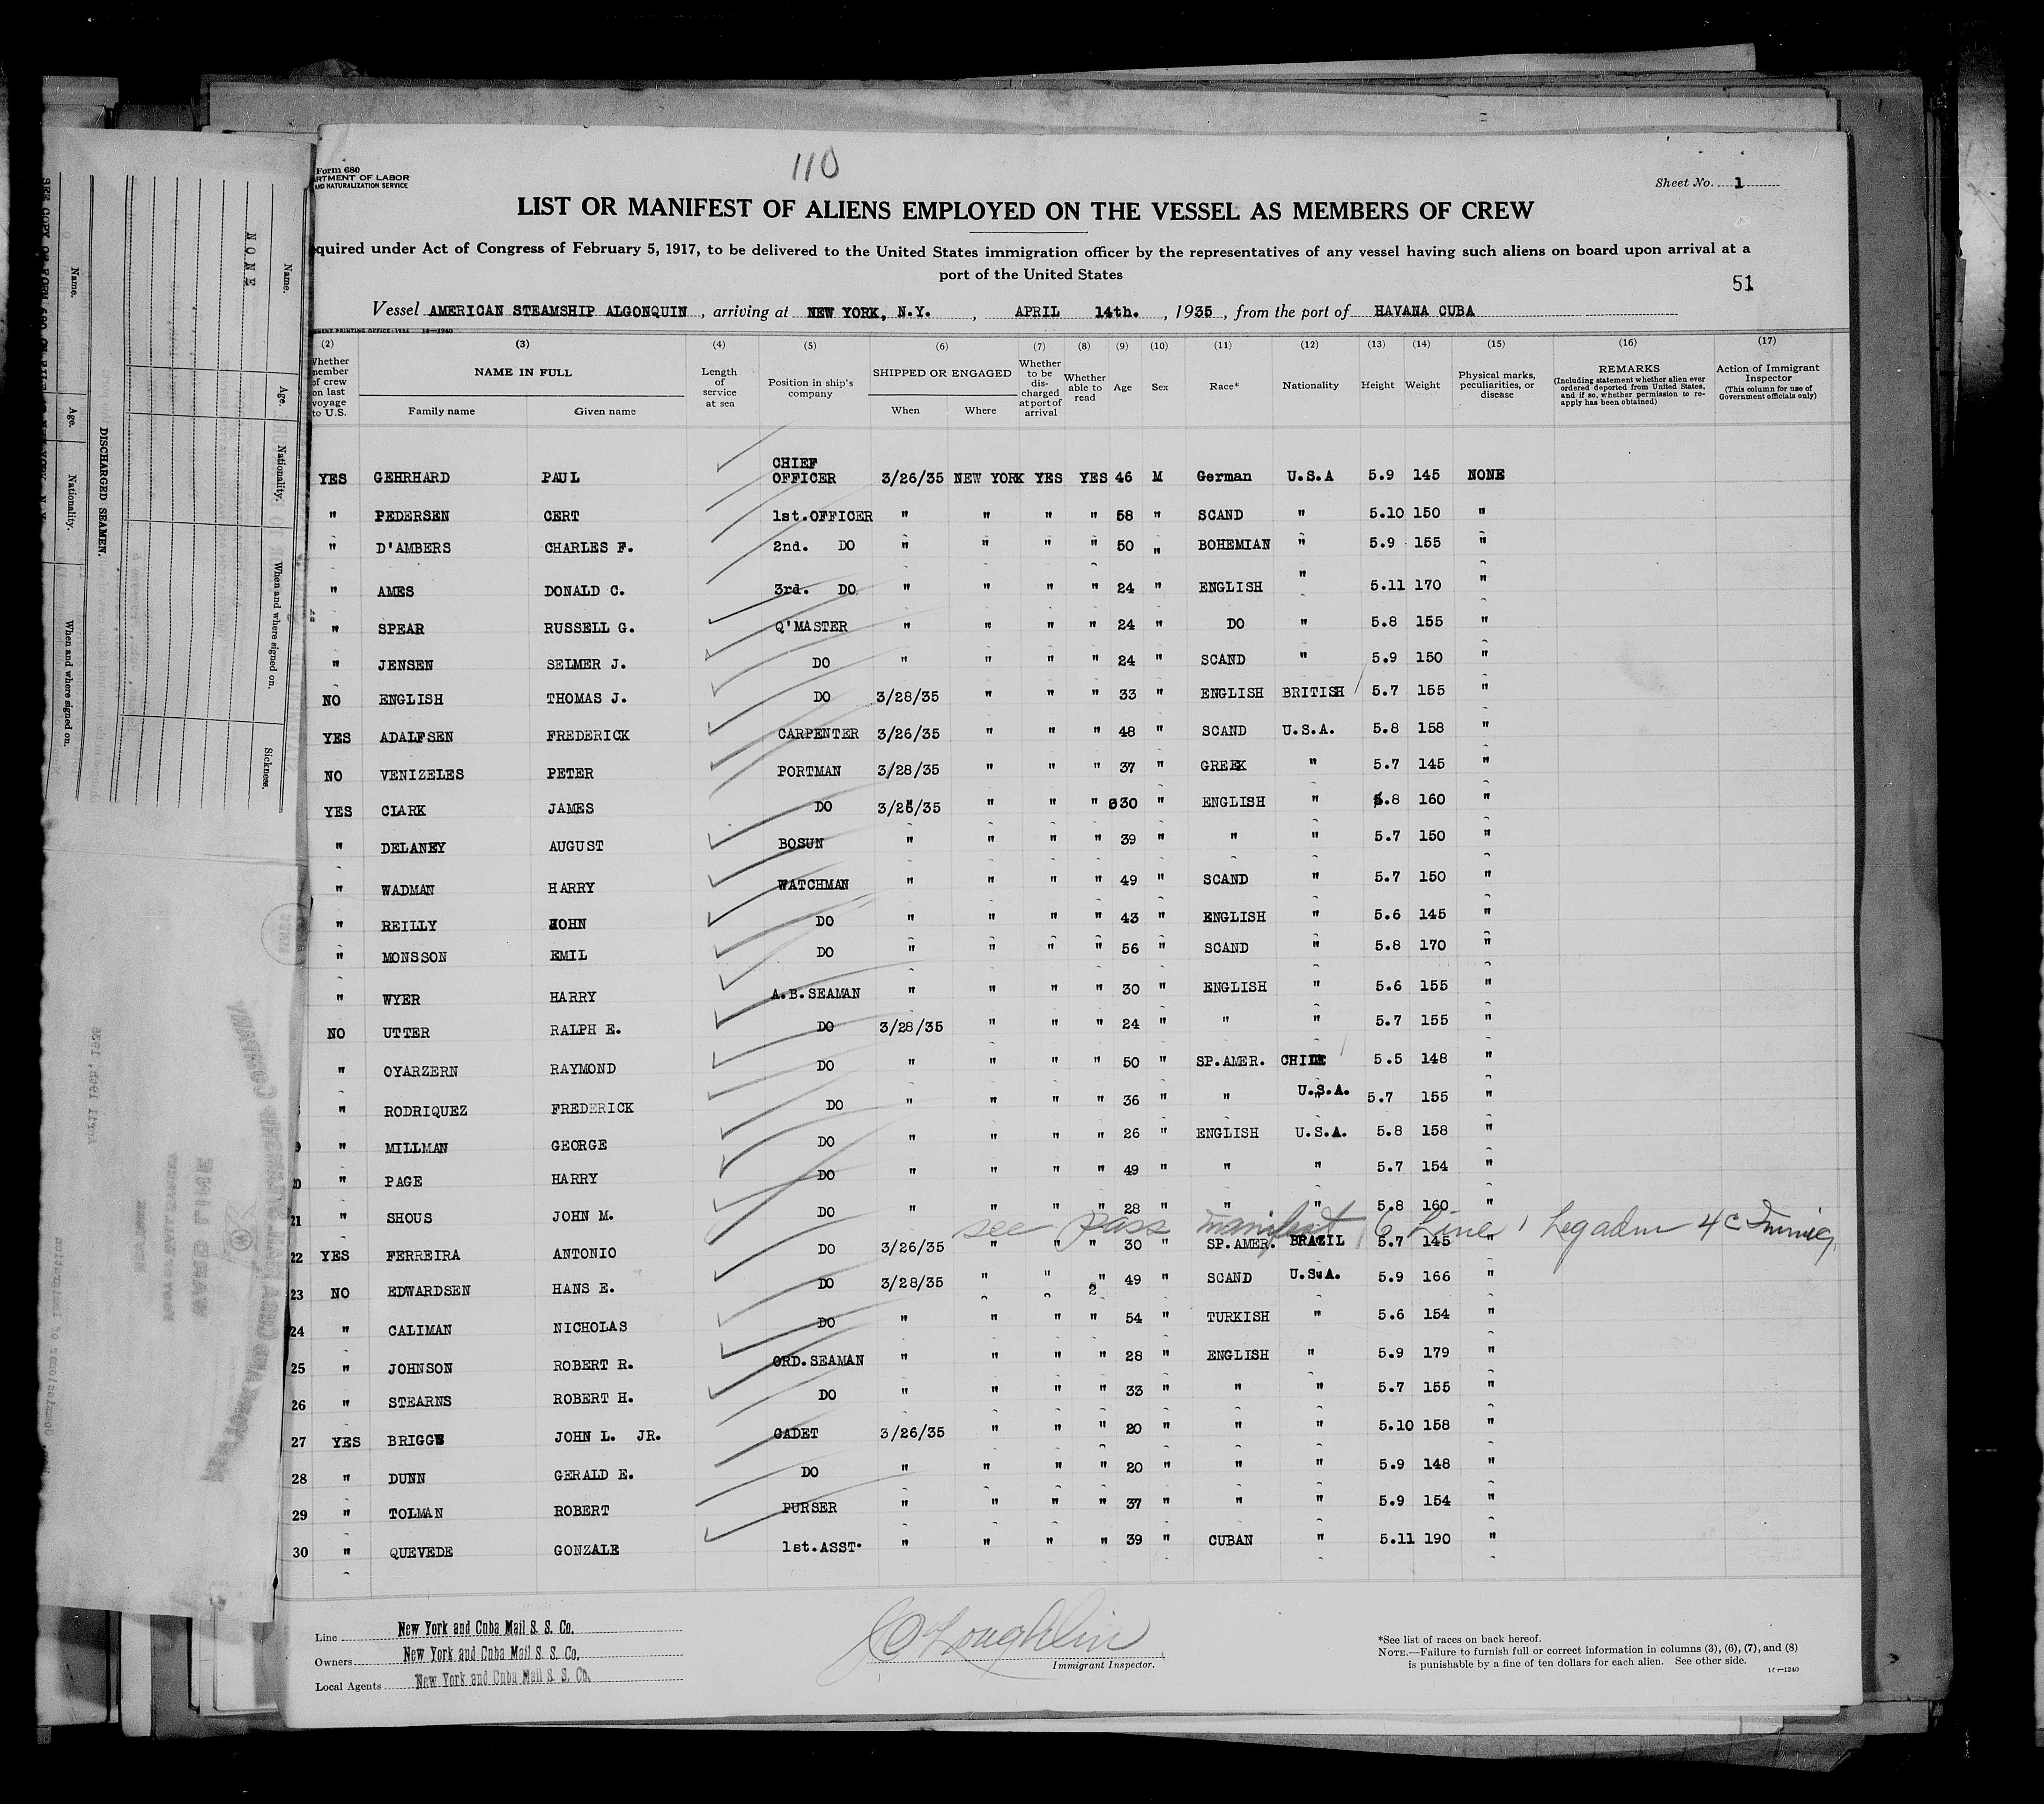 110
Form 680
RTMENT OF LABOR
AND NATURALIZATION SERVICE
Sheet No. 1
LIST OR MANIFEST OF ALIENS EMPLOYED ON THE VESSEL AS MEMBERS OF CREW
quired under Act of Congress of February 5, 1917, to be delivered to the United States immigration officer by the representatives of any vessel having such aliens on board upon arrival at a
port of the United States
51
Vessel AMERICAN STEAMSHIP ALGONQUIN, arriving at NEW YORK, N.Y., APRIL 14th., 1935, from the port of HAVANA CUBA
(2) (3) (4) (5) (6) (7) (8) (9) (10) (11) (12) (13) (14) (15) (16) (17)
Whether member of crew on last voyage to U.S. NAME IN FULL Family name Given name Length of service at sea Position in ship's company SHIPPED OR ENGAGED When Where Whether to be discharged at port of arrival Whether able to read Age Sex Race* Nationality Height Weight Physical marks, peculiarities, or disease REMARKS (Including statement whether alien ever ordered deported from United States, and if so, whether permission to re-apply has been obtained) Action of Immigrant Inspector (This column for use of Government officials only)
YES GEHRHARD PAUL CHIEF OFFICER 3/26/35 NEW YORK YES YES 46 M German U.S.A 5.9 145 NONE
" PEDERSEN CERT 1st.OFFICER " " " " 58 " SCAND " 5.10 150 "
" D'AMBERS CHARLES F. 2nd. DO " " " " 50 " BOHEMIAN " 5.9 155 "
" AMES DONALD C. 3rd. DO " " " " 24 " ENGLISH " 5.11 170 "
" SPEAR RUSSELL G. Q'MASTER " " " " 24 " DO " 5.8 155 "
" JENSEN SELMER J. DO " " " " 24 " SCAND " 5.9 150 "
NO ENGLISH THOMAS J. DO 3/28/35 " " " 33 " ENGLISH BRITISH 5.7 155 "
YES ADALFSEN FREDERICK CARPENTER 3/26/35 " " " 48 " SCAND U.S.A. 5.8 158 "
NO VENIZELES PETER PORTMAN 3/28/35 " " " 37 " GREEK " 5.7 145 "
YES CLARK JAMES DO 3/26/35 " " " 30 " ENGLISH " 5.8 160 "
" DELANEY AUGUST BOSUN " " " " 39 " " " 5.7 150 "
" WADMAN HARRY WATCHMAN " " " " 49 " SCAND " 5.7 150 "
" REILLY JOHN DO " " " " 43 " ENGLISH " 5.6 145 "
" MONSSON EMIL DO " " " " 56 " SCAND " 5.8 170 "
" WYER HARRY A.B.SEAMAN " " " " 30 " ENGLISH " 5.6 155 "
NO UTTER RALPH E. DO 3/28/35 " " " 24 " " " 5.7 155 "
" OYARZERN RAYMOND DO " " " " 50 " SP.AMER. CHILE 5.5 148 "
" RODRIQUEZ FREDERICK DO " " " " 36 " " U.S.A. 5.7 155 "
" MILLMAN GEORGE DO " " " " 26 " ENGLISH U.S.A. 5.8 158 "
" PAGE HARRY DO " " " " 49 " " " 5.7 154 "
21 " SHOUS JOHN M. DO " " " " 28 " " " 5.8 160 "
see pass manifest 6 Line 1
22 YES FERREIRA ANTONIO DO 3/26/35 " " " 30 " SP.AMER. BRAZIL 5.7 145 "
23 NO EDWARDSEN HANS E. DO 3/28/35 " " " 49 " SCAND U.S.A. 5.9 166 "
24 " CALIMAN NICHOLAS DO " " " " 54 " TURKISH " 5.6 154 "
25 " JOHNSON ROBERT R. ORD.SEAMAN " " " " 28 " ENGLISH " 5.9 179 "
26 " STEARNS ROBERT H. DO " " " " 33 " " " 5.7 155 "
27 YES BRIGGS JOHN L. JR. CADET 3/26/35 " " " 20 " " " 5.10 158 "
28 " DUNN GERALD E. DO " " " " 20 " " " 5.9 148 "
29 " TOLMAN ROBERT PURSER " " " " 37 " " " 5.9 154 "
30 " QUEVEDE GONZALE 1st.ASST. " " " " 39 " CUBAN " 5.11 190 "
Line New York and Cuba Mail S. S. Co.
Owners New York and Cuba Mail S. S. Co.
Local Agents New York and Cuba Mail S. S. Co.
Immigrant Inspector.
*See list of races on back hereof.
NOTE.—Failure to furnish full or correct information in columns (3), (6), (7), and (8)
is punishable by a fine of ten dollars for each alien. See other side.
Name. Age. Nationality. When and where signed on. Sickness.
NONE
DISCHARGED SEAMEN.
Name. Age. Nationality. When and where signed on.
April 19th, 1935
WARD LINE